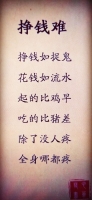 挣钱难
挣钱如捉鬼
花钱如流水
起的比鸡早
吃的比猪差
除了没人疼
全身哪都疼